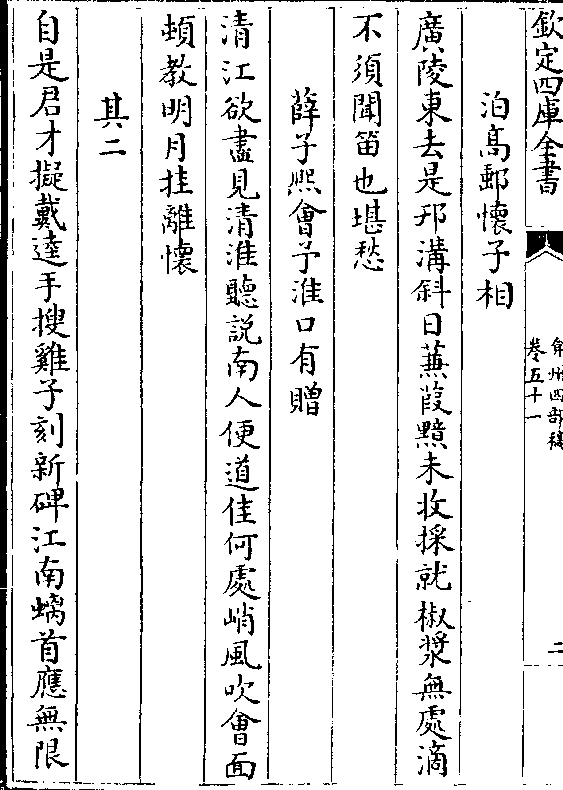 欽定四庫全書
弇州四部稿
卷五十一
二
泊高郵懷子相
廣陵東去是邗溝斜日蒹葭黯未收採就椒漿無處滴
不須聞笛也堪愁
薛子熙會予淮口有贈
清江欲盡見清淮聽說南人便道佳何處峭風吹會面
頓教明月挂離懷
其二
自是君才擬戴逵手搜雞子刻新碑江南螭首應無限